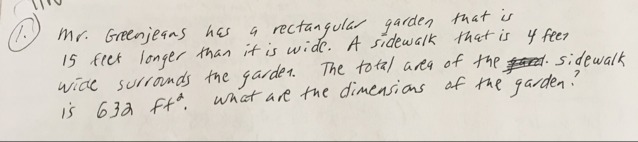 1.) Mr. Greenjeans has a rectangular garden that is
15 feet longer than it is wide. A sidewalk that is 4 feet
wide surrounds the garden. The total area of the sidewalk
is 632 ft². What are the dimensions of the garden?